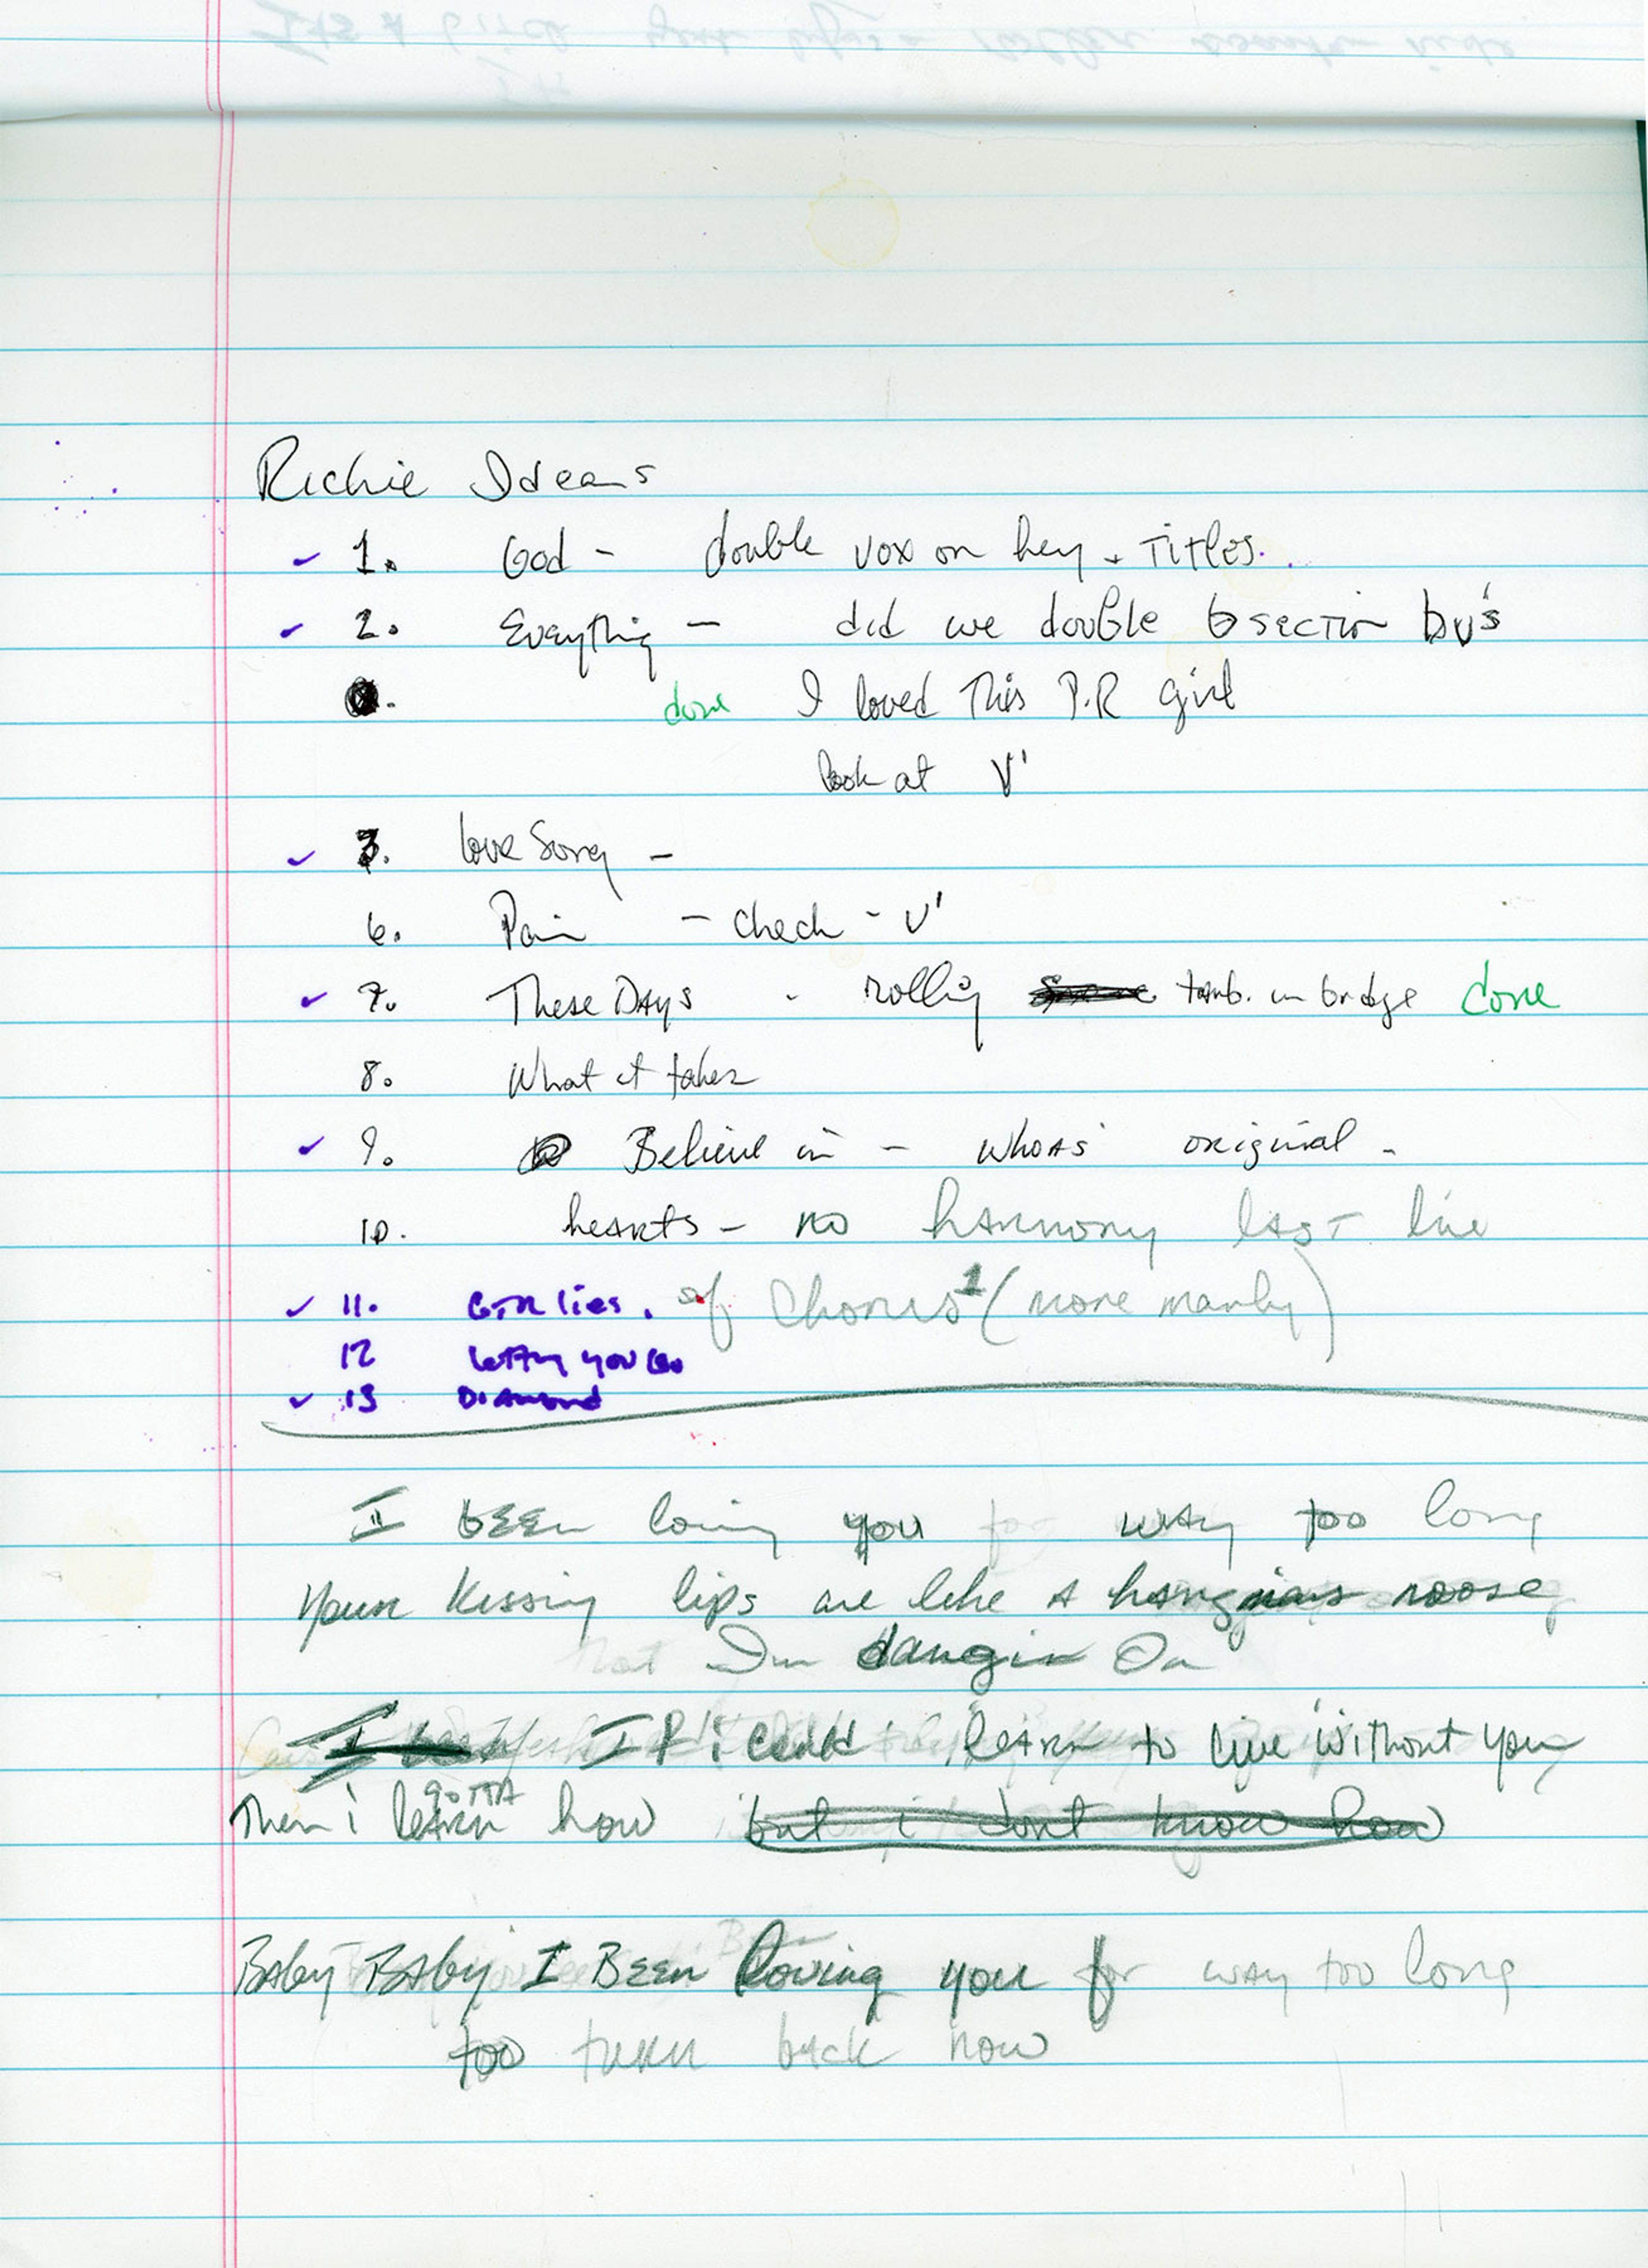 Richie Ideas
1. God - double vox on hey + Titles.
2. Everything - did we double b section bv's
done I loved This P.R girl
look at V'
3. love Song -
6. Pain - check - V'
7. These DAys - rolling tamb. in bridge done
8. What it takes
9. Believe in - whoas' original -
10. hearts - no hArmony lAST line
11. GTR lies. of Chorus 1 (more manly)
12 wAy you Go
13 DiAmond
I bEEn loving you for wAy too long
Your kissing lips are like A hanging noose
that Im dangin On
If i could learn to live without you
gotta
Then i leArn how but i dont know how
BAby BAby I BEEn loving you for wAy too long
too turn bAck now